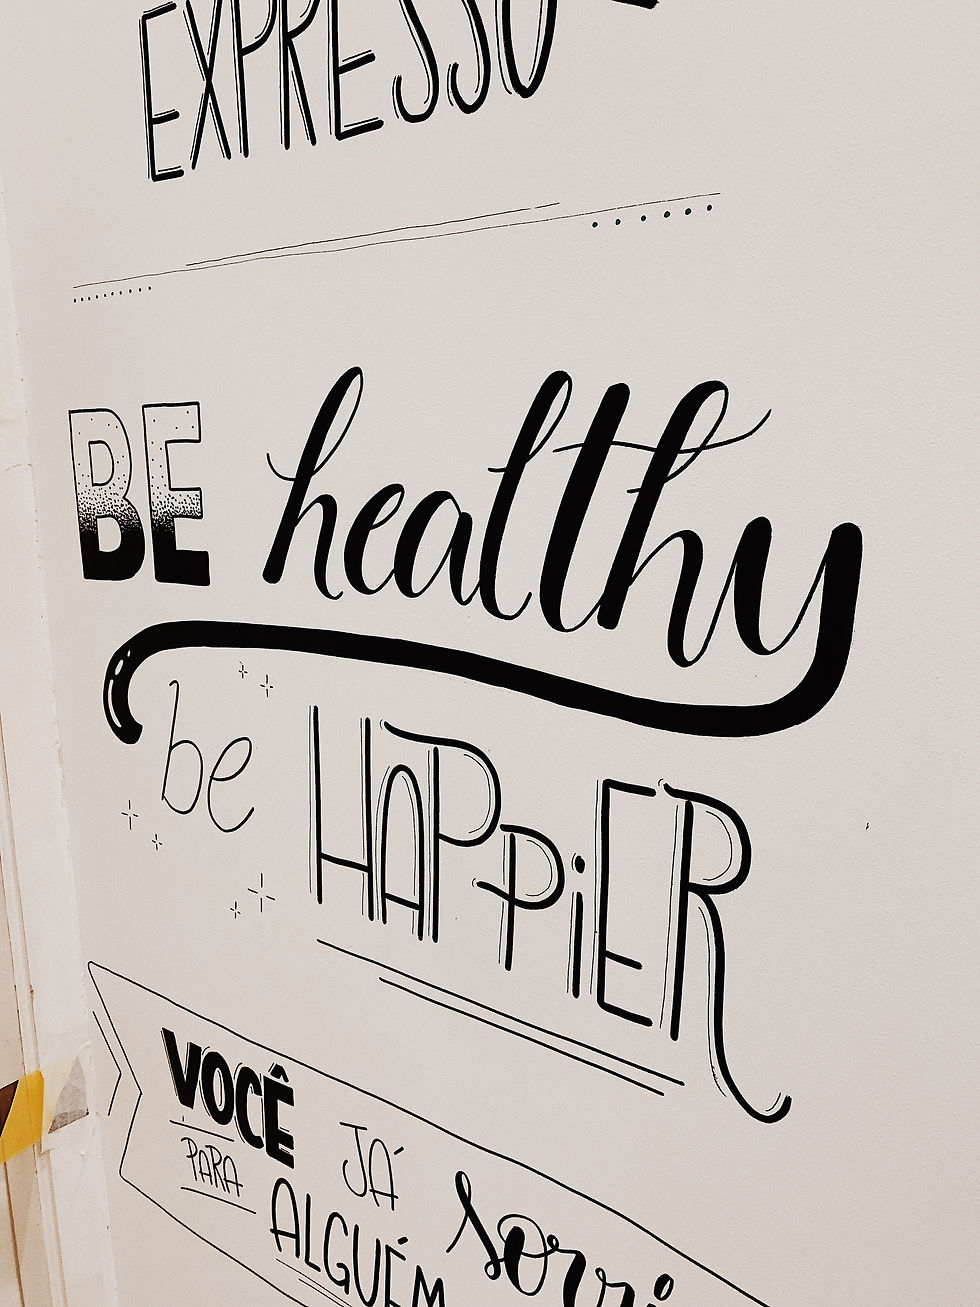 EXPRESSO
BE healthy
be HAPPiER
VOCÊ JÁ sorri
PARA ALGUÉM